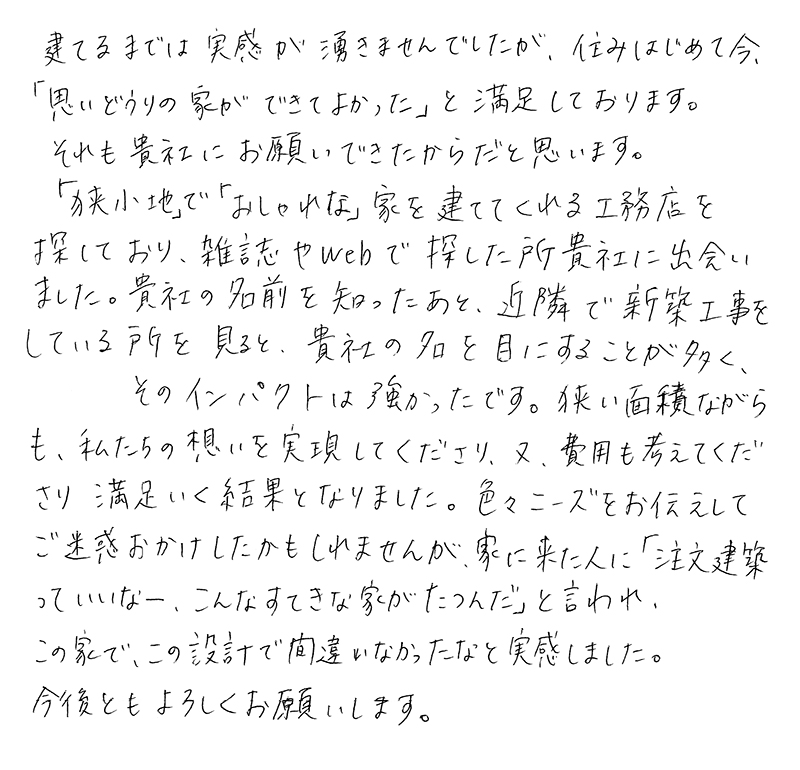 建てるまでは実感が湧きませんでしたが、住みはじめて今、
「思いどうりの家ができてよかった」と満足しております。
それも貴社にお願いできたからだと思います。
「狭小地」で「おしゃれな」家を建ててくれる工務店を
探しており、雑誌やWebで探した所貴社に出会い
ました。貴社の名前を知ったあと、近隣で新築工事を
している所を見ると、貴社の名を目にすることが多く、
そのインパクトは強かったです。狭い面積ながら
も、私たちの想いを実現してくださり、又、費用も考えてくだ
さり満足いく結果となりました。色々ニーズをお伝えして
ご迷惑おかけしたかもしれませんが、家に来た人に「注文建築
っていいなー、こんなすてきな家がたつんだ」と言われ、
この家で、この設計で間違いなかったなと実感しました。
今後ともよろしくお願いします。